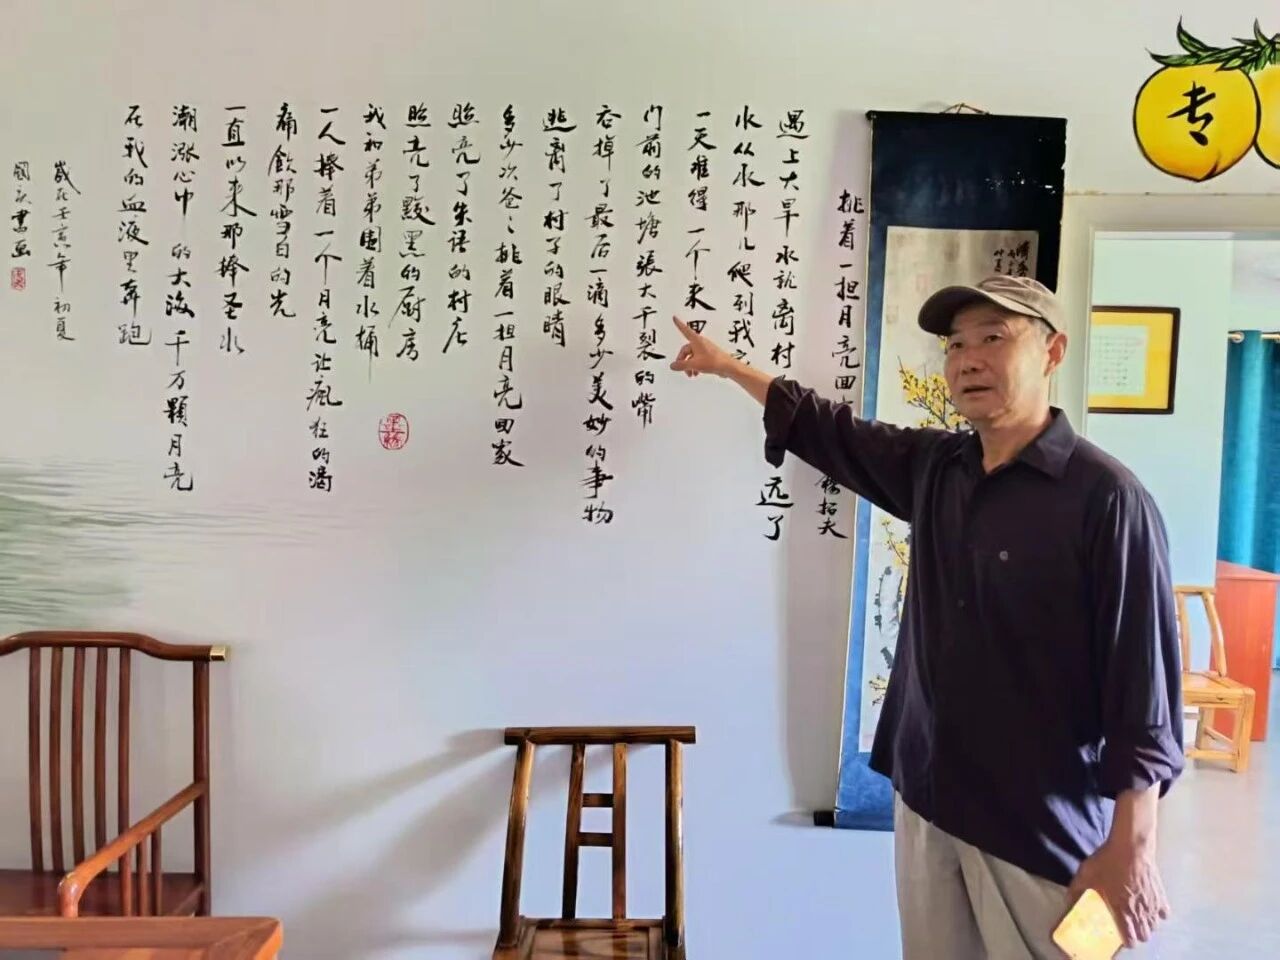 专
挑着一担月亮回
拓夫
遇上大旱 水就离村
远了
水从水那儿爬到我
一天难得一个来回
门前的池塘張大干裂的嘴
吞掉了最后一滴多少美妙的事物
逃离了村子的眼睛
多少次爸〻挑着一担月亮回家
照亮了失语的村庄
照亮了黢黑的厨房
我和弟弟围着水桶
一人捧着一个月亮让瘋狂的渴
痛飲那雪白的光
一直以来那捧圣水
潮涨心中的大海千万顆月亮
在我的血液里奔跑
岁在壬寅年初夏
國庆書画